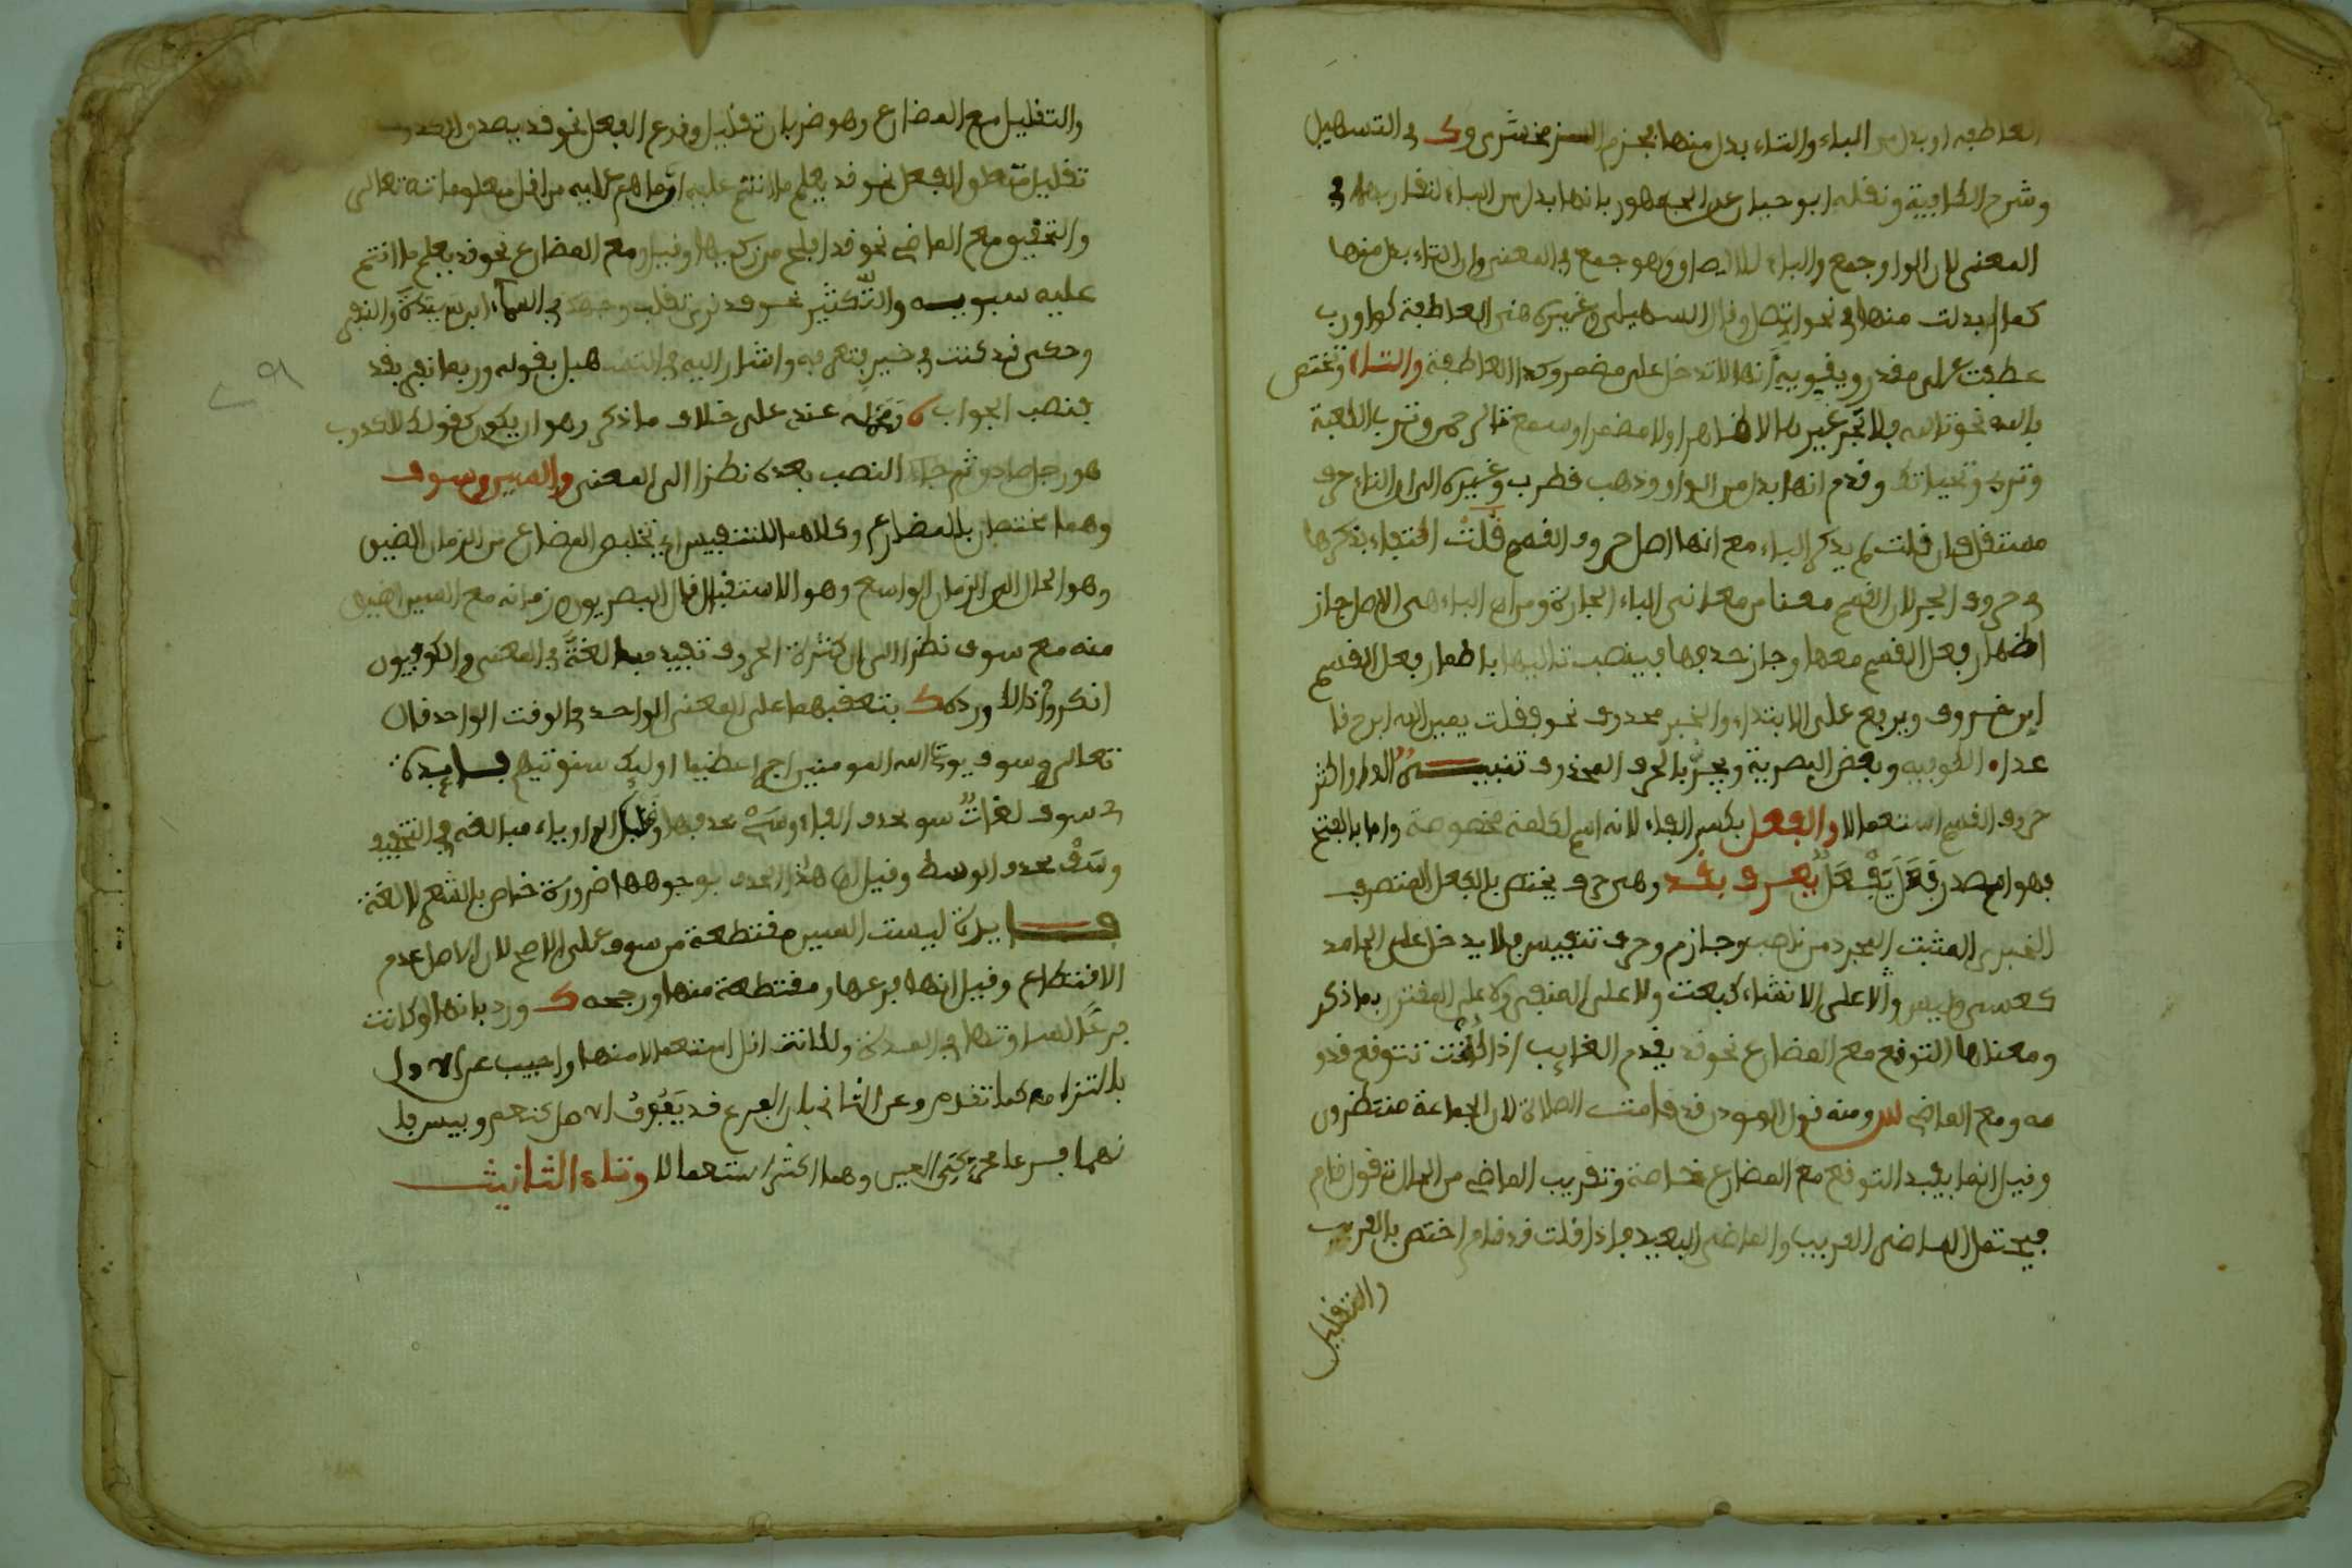 العاطفة او بدل من الباء والتاء بدل منها بجزم الزمخشري وك في التسهيل
وشرح الكافية ونقله ابو حيان عن الجمهور بانها بدل من الباء لتقاربهما في
المعنى لان الواو جمع والباء للالصاق وهو جمع في المعنى وان التاء بدل منها
كما ابدلت منها في نحو اتصل وقال السهيلي وغيره هي العاطفة كواو رب
عطفت على مقدر ويقويه انها لا تدخل على مضمر وكذا العاطفة والتاء وتختص
بالله نحو تالله فلا تجر غيره لا ظاهرا ولا مضمرا وسمع تالرحمن وترب الكعبة
وتربي وتحياتك وقدم انها بدل من الواو وذهب قطرب وغيره الى ان التاء حرف
مستقل فان قلت لم يذكر الباء مع انها اصل حروف القسم قلت اكتفاء بذكرها
في حروف الجر لان القسم معنا من معاني الباء الجارة ومن ان الباء هي الاصل جاز
اظهار فعل القسم معها وجاز حذفها فينصب تاليها باضمار فعل القسم
ابن خروف ويرفع على الابتداء والخبر محذوف نحو فقلت يمين الله ابرح قا
عدا الكوفيه وبعض البصرية ويجر بالحرف المحذوف تنبيه الواو اكثر
حروف القسم استعمالا والفعل بكسر الفاء لانه اسم لكلمة مخصوصة واما بالفتح
فهو مصدر فعل يفعل يعرف بقد وهي حرف يختص بالفعل المتصرف
الخبري المثبت المجرد من ناصب وجازم وحرف تنفيس فلا يدخل على الجامد
كعسى وليس ولا على الانشاء كبعت ولا على المنفي ولا على المقترن بما ذكر
ومعناها التوقع مع المضارع نحو قد يقدم الغايب اذا كنت تتوقع قدو
مه ومع الماضي ومنه قول الموذن قد قامت الصلاة لان الجماعة منتظرون
وقيل انما يفيد التوقع مع المضارع خاصة وتقريب الماضي من الحال تقول قام
فيحتمل الماضي القريب والماضي البعيد فاذا قلت قد قام اختص بالقريب
والتقليل
والتقليل مع المضارع وهو ضربان تقليل وقوع الفعل نحو قد يصدق الكذوب
تقليل متعلق الفعل نحو قد يعلم ما انتم عليه اي ما هم عليه من اقل معلوماته تعالى
والتحقيق مع الماضي نحو قد افلح من زكيها وقيل ومع المضارع نحو قد يعلم ما انتم
عليه سيبويه والتكثير نحو قد نرى تقلب وجهك في السماء ابن سيدة والنفي
وحكى قد كنت في خير فتعرفه واشار اليه في التسهيل بقوله وربما نفي بقد
فنصب الجواب عند على خلاف ما ذكر وهو ان يكون كقولك للكذوب
هو رجل صادق ثم جاء النصب بعده نظرا الى المعنى والسين وسوف
وهما مختصان بالمضارع وكلاهما للتنفيس اي تخليص المضارع من الزمان الضيق
وهو الحال الى الزمان الواسع وهو الاستقبال قال البصريون زمانه مع السين اضيق
منه مع سوف نظرا الى ان كثرة الحروف تفيد مبالغة في المعنى والكوفيون
انكروا ذلك ورده ك بتعقبهما على المعنى الواحد في الوقت الواحد قال
تعالى وسوف يوت الله المومنين اجرا عظيما اوليك سنوتيهم فايدة
في سوف لغات سو بحذف الفاء وسي بحذفها وقلب الواو ياء مبالغة في التخفيف
وسف بحذف الوسط وقيل ان هذا الحذف بوجوهها ضرورة خاص بالشعر لا لغة
فايدة ليست السين مقتطعة من سوف على الاصح لان الاصل عدم
الاقتطاع وقيل انها فرعها ومقتطعة منها ورجحه ك ورد بانها لو كانت
فرعها لساوتها في المدة ولكانت اقل استعمالا منها واجيب عن الاول
بالتزامه كما تقدم وعن الثاني بان الفرع قد يفوق الاصل كنعم وبيس فا
نهما فرعا محركتي العين وهما اكثر استعمالا وتاء التانيث